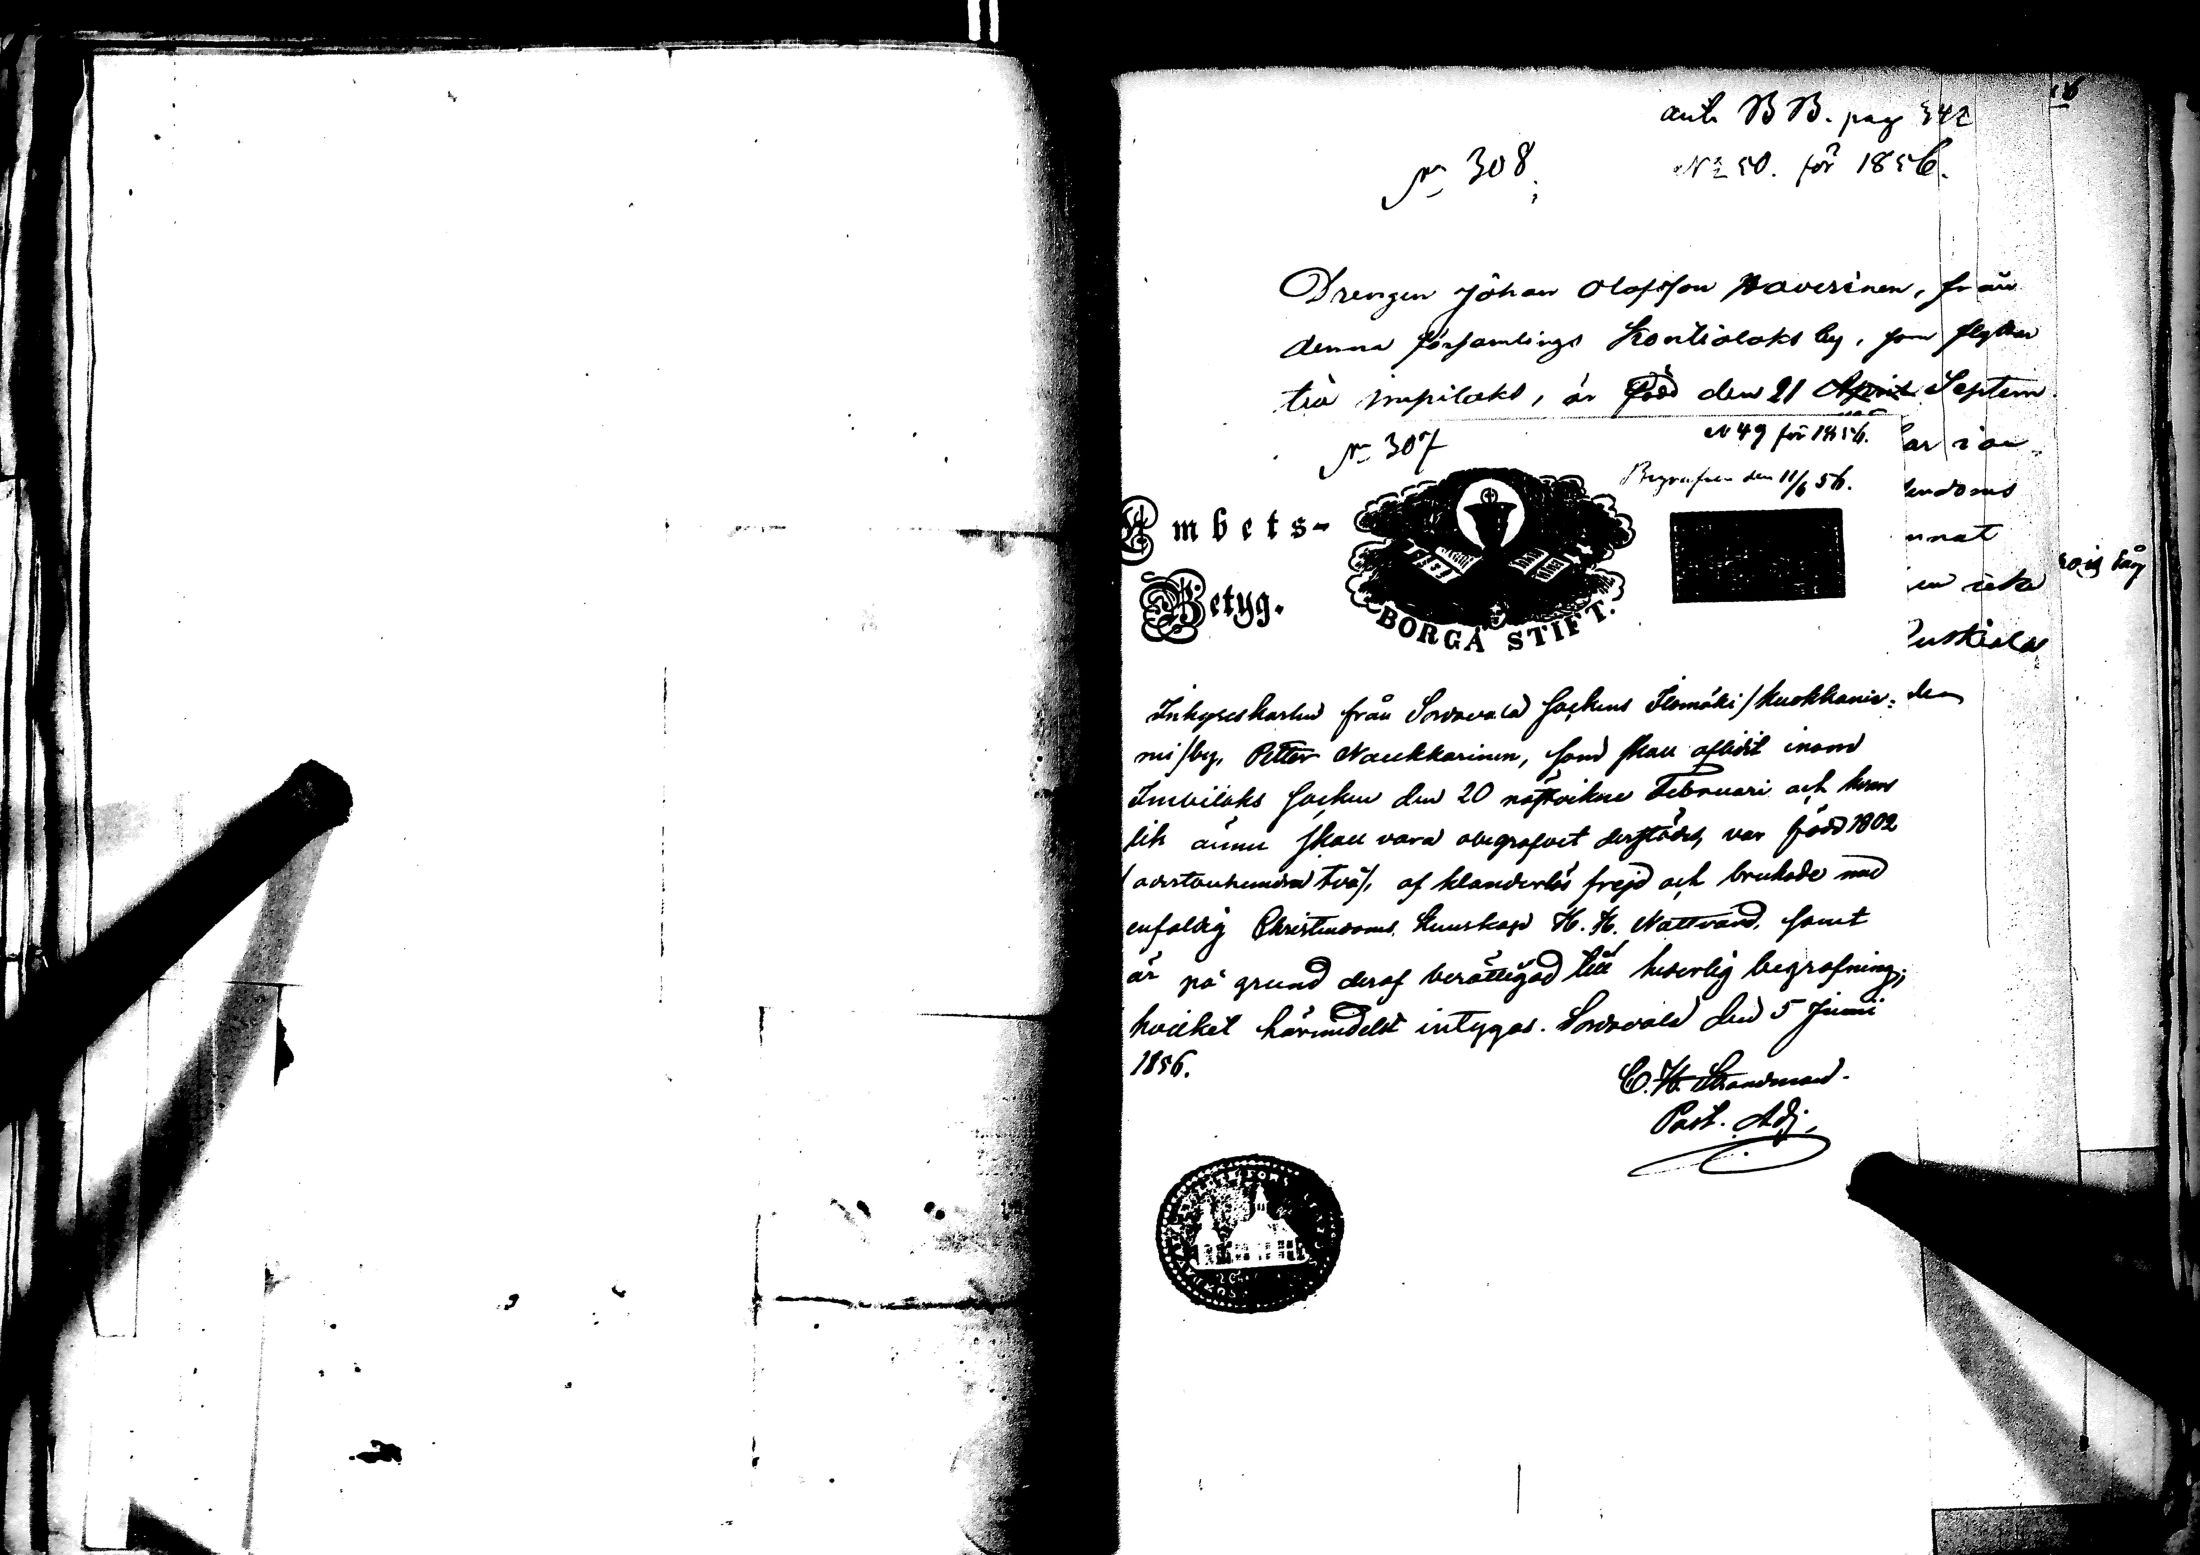 16
ant. B B. pag 342
№ 308. № 50. för 1856.
Drengen Johan Olofsson Haverinen, från
denna församlings Kontiolaks by, som flyttar
till Impilaks, är född den 21 April Septem
№ 307
N 49 för 1856.
ar i
Begrafven den 11/6 56.
endoms
Embets-
nnat
Betyg.
BORGÅ STIFT.
icke
Inhyseskarlen från Sordavala Sockens Ilomäki /Kuokkanie- den
mi/by, Petter Naukkarinen, som skall aflidit inom
Impilaks Socken den 20 nästvikne Februari och hvars
lik ännu skall vara obegrafvet derstädes, var född 1802
/adertonhundra två/, af klanderlös frejd och brukade med
enfaldig Christendoms kunskap H. H. Nattvard, samt
är på grund deraf berättigad till hederlig begrafning;
hvilket härmedelst intygas. Sordavala den 5 Juni
1856.
C. H. Strandman.
Past. Adj.